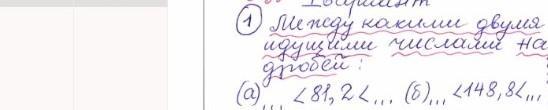 I вариант
① Между какими двумя
идущими числами на
дробей:
(а) ... <81,2<... (б) ... <148,8<...